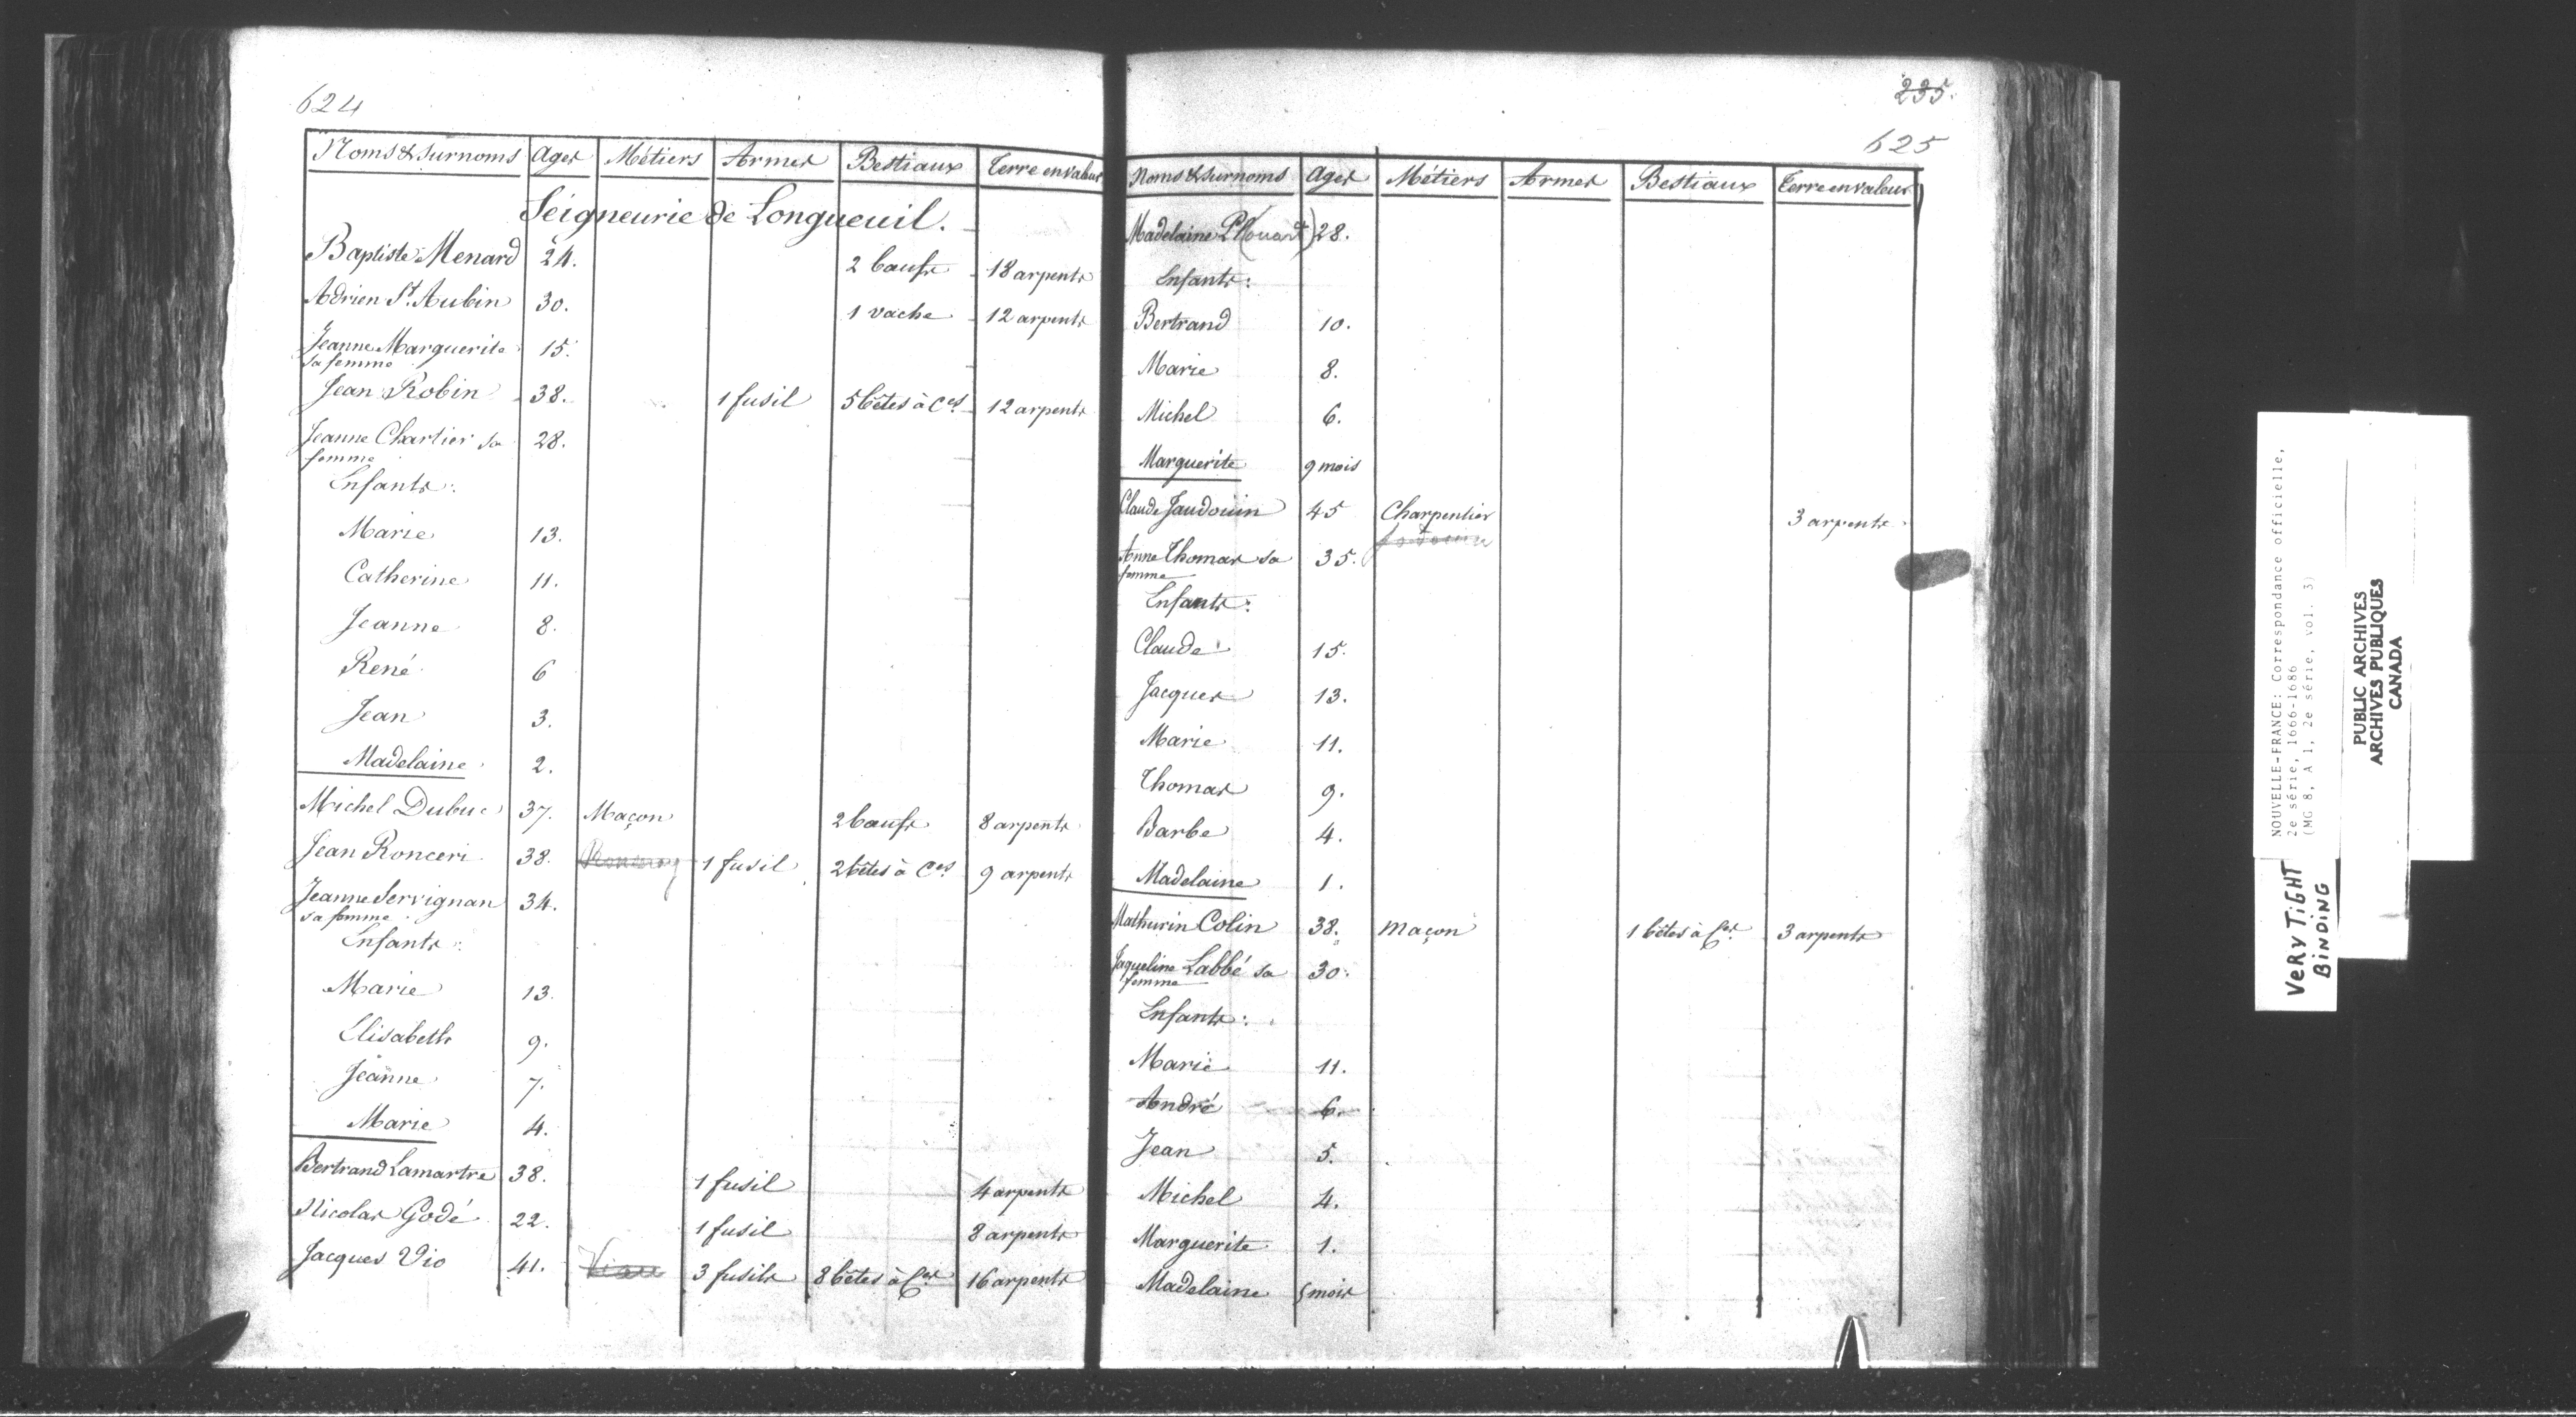 624
Noms & surnoms Ages Métiers Armes Bestiaux Terre en valeur
Seigneurie de Longueuil.
Baptiste Menard 24. 2 bœufs 18 arpents
Adrien St. Aubin 30. 1 vache 12 arpents
Jeanne Marguerite 15.
sa femme
Jean Robin 38. 1 fusil 5 bêtes à Ces 12 arpents
Jeanne Chartier sa 28.
femme
Enfants:
Marie 13.
Catherine 11.
Jeanne 8.
René 6
Jean 3.
Madelaine 2.
Michel Dubuc 37. Maçon 2 bœufs 8 arpents
Jean Ronceri 38. 1 fusil 2 bêtes à Ces 9 arpents
Jeanne Servignan 34.
sa femme
Enfants:
Marie 13.
Elisabeth 9.
Jeanne 7.
Marie 4.
Bertrand Lamartre 38. 1 fusil 4 arpents
Nicolas Godé 22. 1 fusil 8 arpents
Jacques Vio 41. Viau 3 fusils 8 bêtes à Ces 16 arpents
235.
625
Noms & surnoms Ages Métiers Armes Bestiaux Terre en valeur
Madelaine 28.
Enfants:
Bertrand 10.
Marie 8.
Michel 6.
Marguerite 9 mois
Claude Jaudouin 45 Charpentier 3 arpents
Anne Thomas sa 35.
femme
Enfants:
Claude 15.
Jacques 13.
Marie 11.
Thomas 9.
Barbe 4.
Madelaine 1.
Mathurin Colin 38. maçon 1 bêtes à Ces 3 arpents
Jaqueline Labbé sa 30.
femme
Enfants:
Marie 11.
André 6.
Jean 5.
Michel 4.
Marguerite 1.
Madelaine 5 mois
NOUVELLE-FRANCE: Correspondance officielle,
2e série, 1666-1686
(MG 8, A 1, 2e série, vol. 3)
VERY TIGHT
BINDING
PUBLIC ARCHIVES
ARCHIVES PUBLIQUES
CANADA